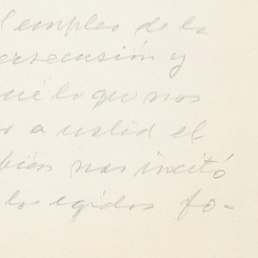 l empleo de la
ersecusión y
ué lo que nos
o a usted el
bién nos incitó
los egidos fo-